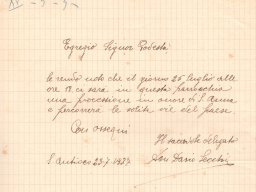 Egregio Signor Podestà
le rendo noto che il giorno 26 luglio alle
ore 18 ci sarà in questa parrocchia
una processione in onore di S. Anna
e percorrerà le solite vie del paese
Con ossequi
Il sacerdote delegato
S. Antioco 23.7.1937
Don Dario